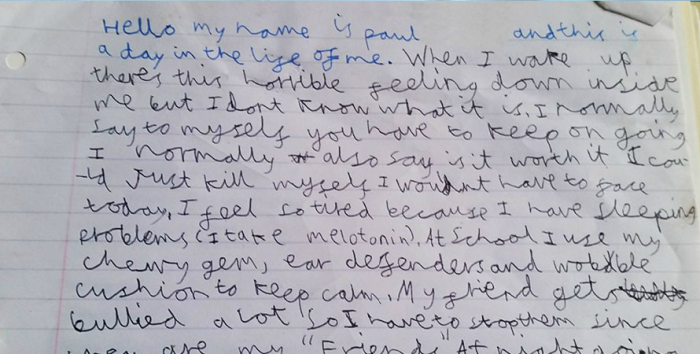 Hello my name is paul andthis is
a day in the life of me. When I wake up
there's this horrible feeling down inside
me but I dont know what it is. I normally
say to myself you have to keep on going
I normally also say is it worth it I cou-
-ld Just kill myself I wouldnt have to face
today, I feel so tired because I have sleeping
problems (I take melotonin). At school I use my
chewy gem, ear defenders and wobble
cushion to keep calm. My friend gets
bullied a lot so I have to stop them since
are my "Friends" At night